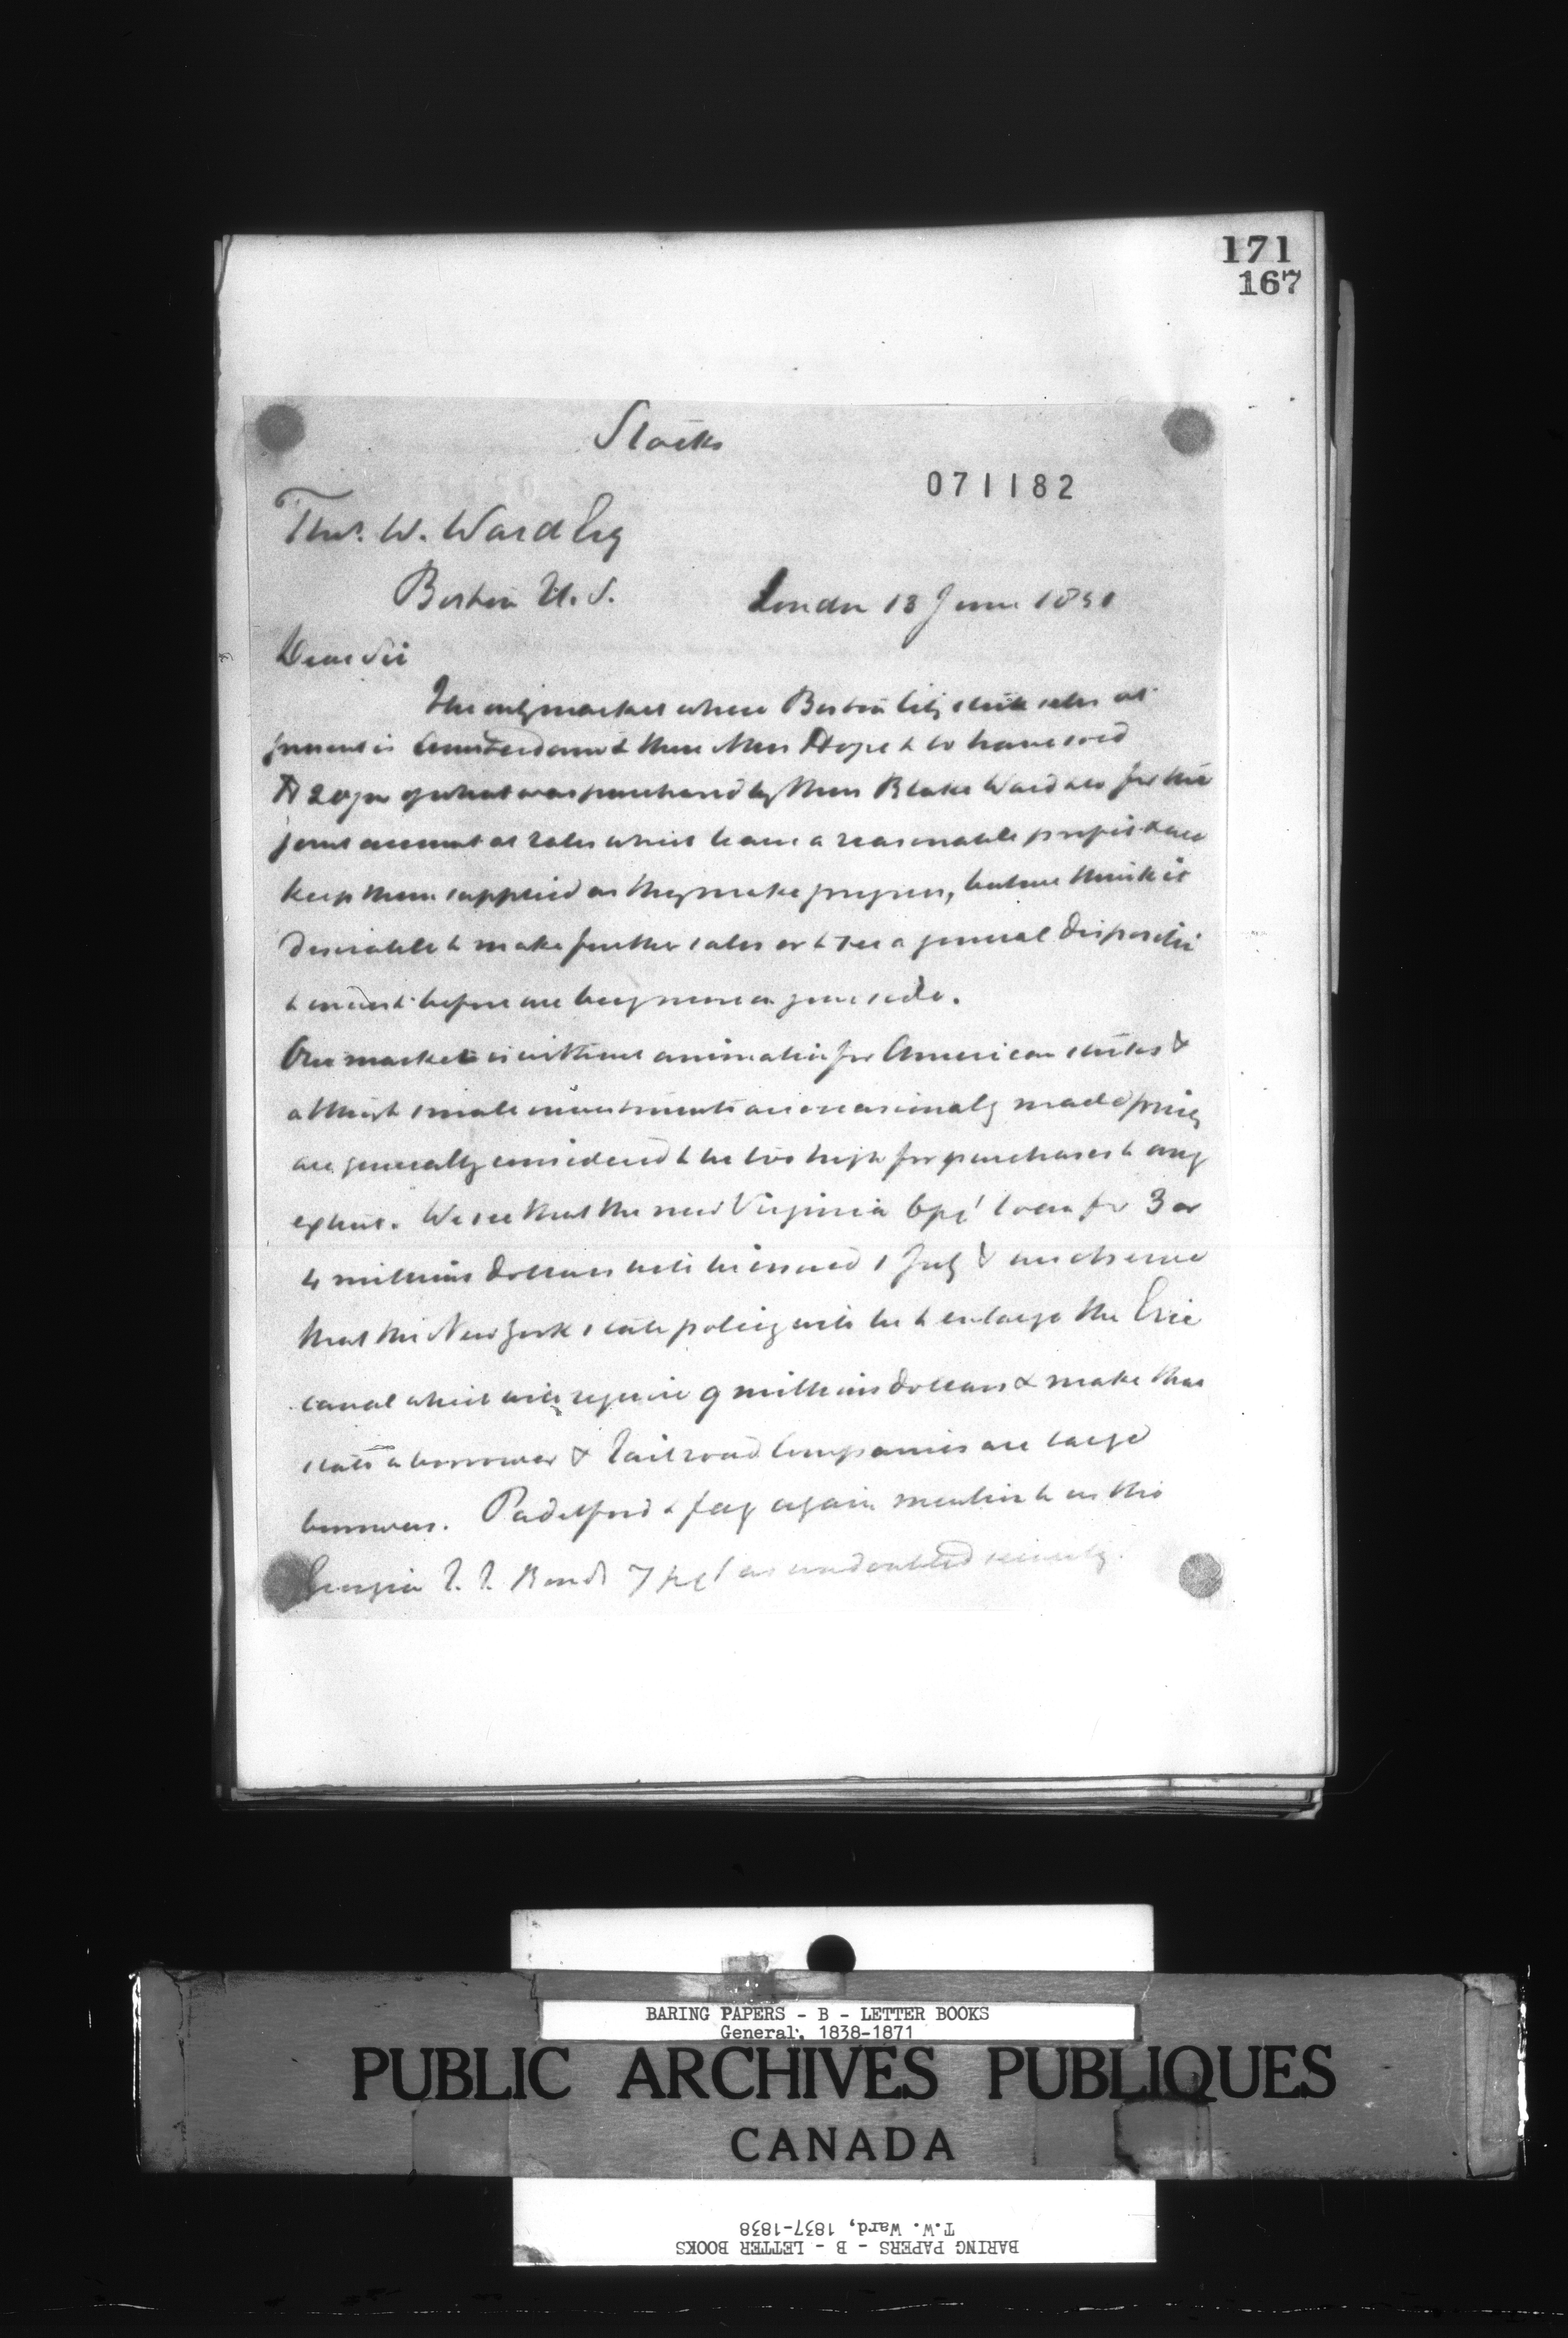 171
167
Stocks
071182
Thos. W. Ward Esq
Boston U. S.
London 13 June 1851
Dear Sir
The only market where Boston City stock sells at
present is Amsterdam & there Mess Hope & Co have sold
20 of what was purchased by Mess Blake Ward & Co for the
joint account at rates which leave a reasonable profit & we
keep them supplied as they make progress, but we think it
desirable to make further sales or to see a general disposition
to invest before we buy more on your side.
Our market is without animation for American stocks &
although small investments are occasionally made prices
are generally considered to be too high for purchases to any
extent. We see that the new Virginia 6 pct loan for 3 or
4 millions dollars will be issued 1 July & we observe
that the New York state policy will be to enlarge the Erie
canal which will require 9 millions dollars & make that
state a borrower & Railroad Companies are large
borrowers. Padelford & Fay again mention to us the
Georgia R. R. Bonds 7 pct as undoubted security.
BARING PAPERS - B - LETTER BOOKS
General, 1838-1871
PUBLIC ARCHIVES PUBLIQUES
CANADA
T.W. Ward, 1837-1838
BARING PAPERS - B - LETTER BOOKS